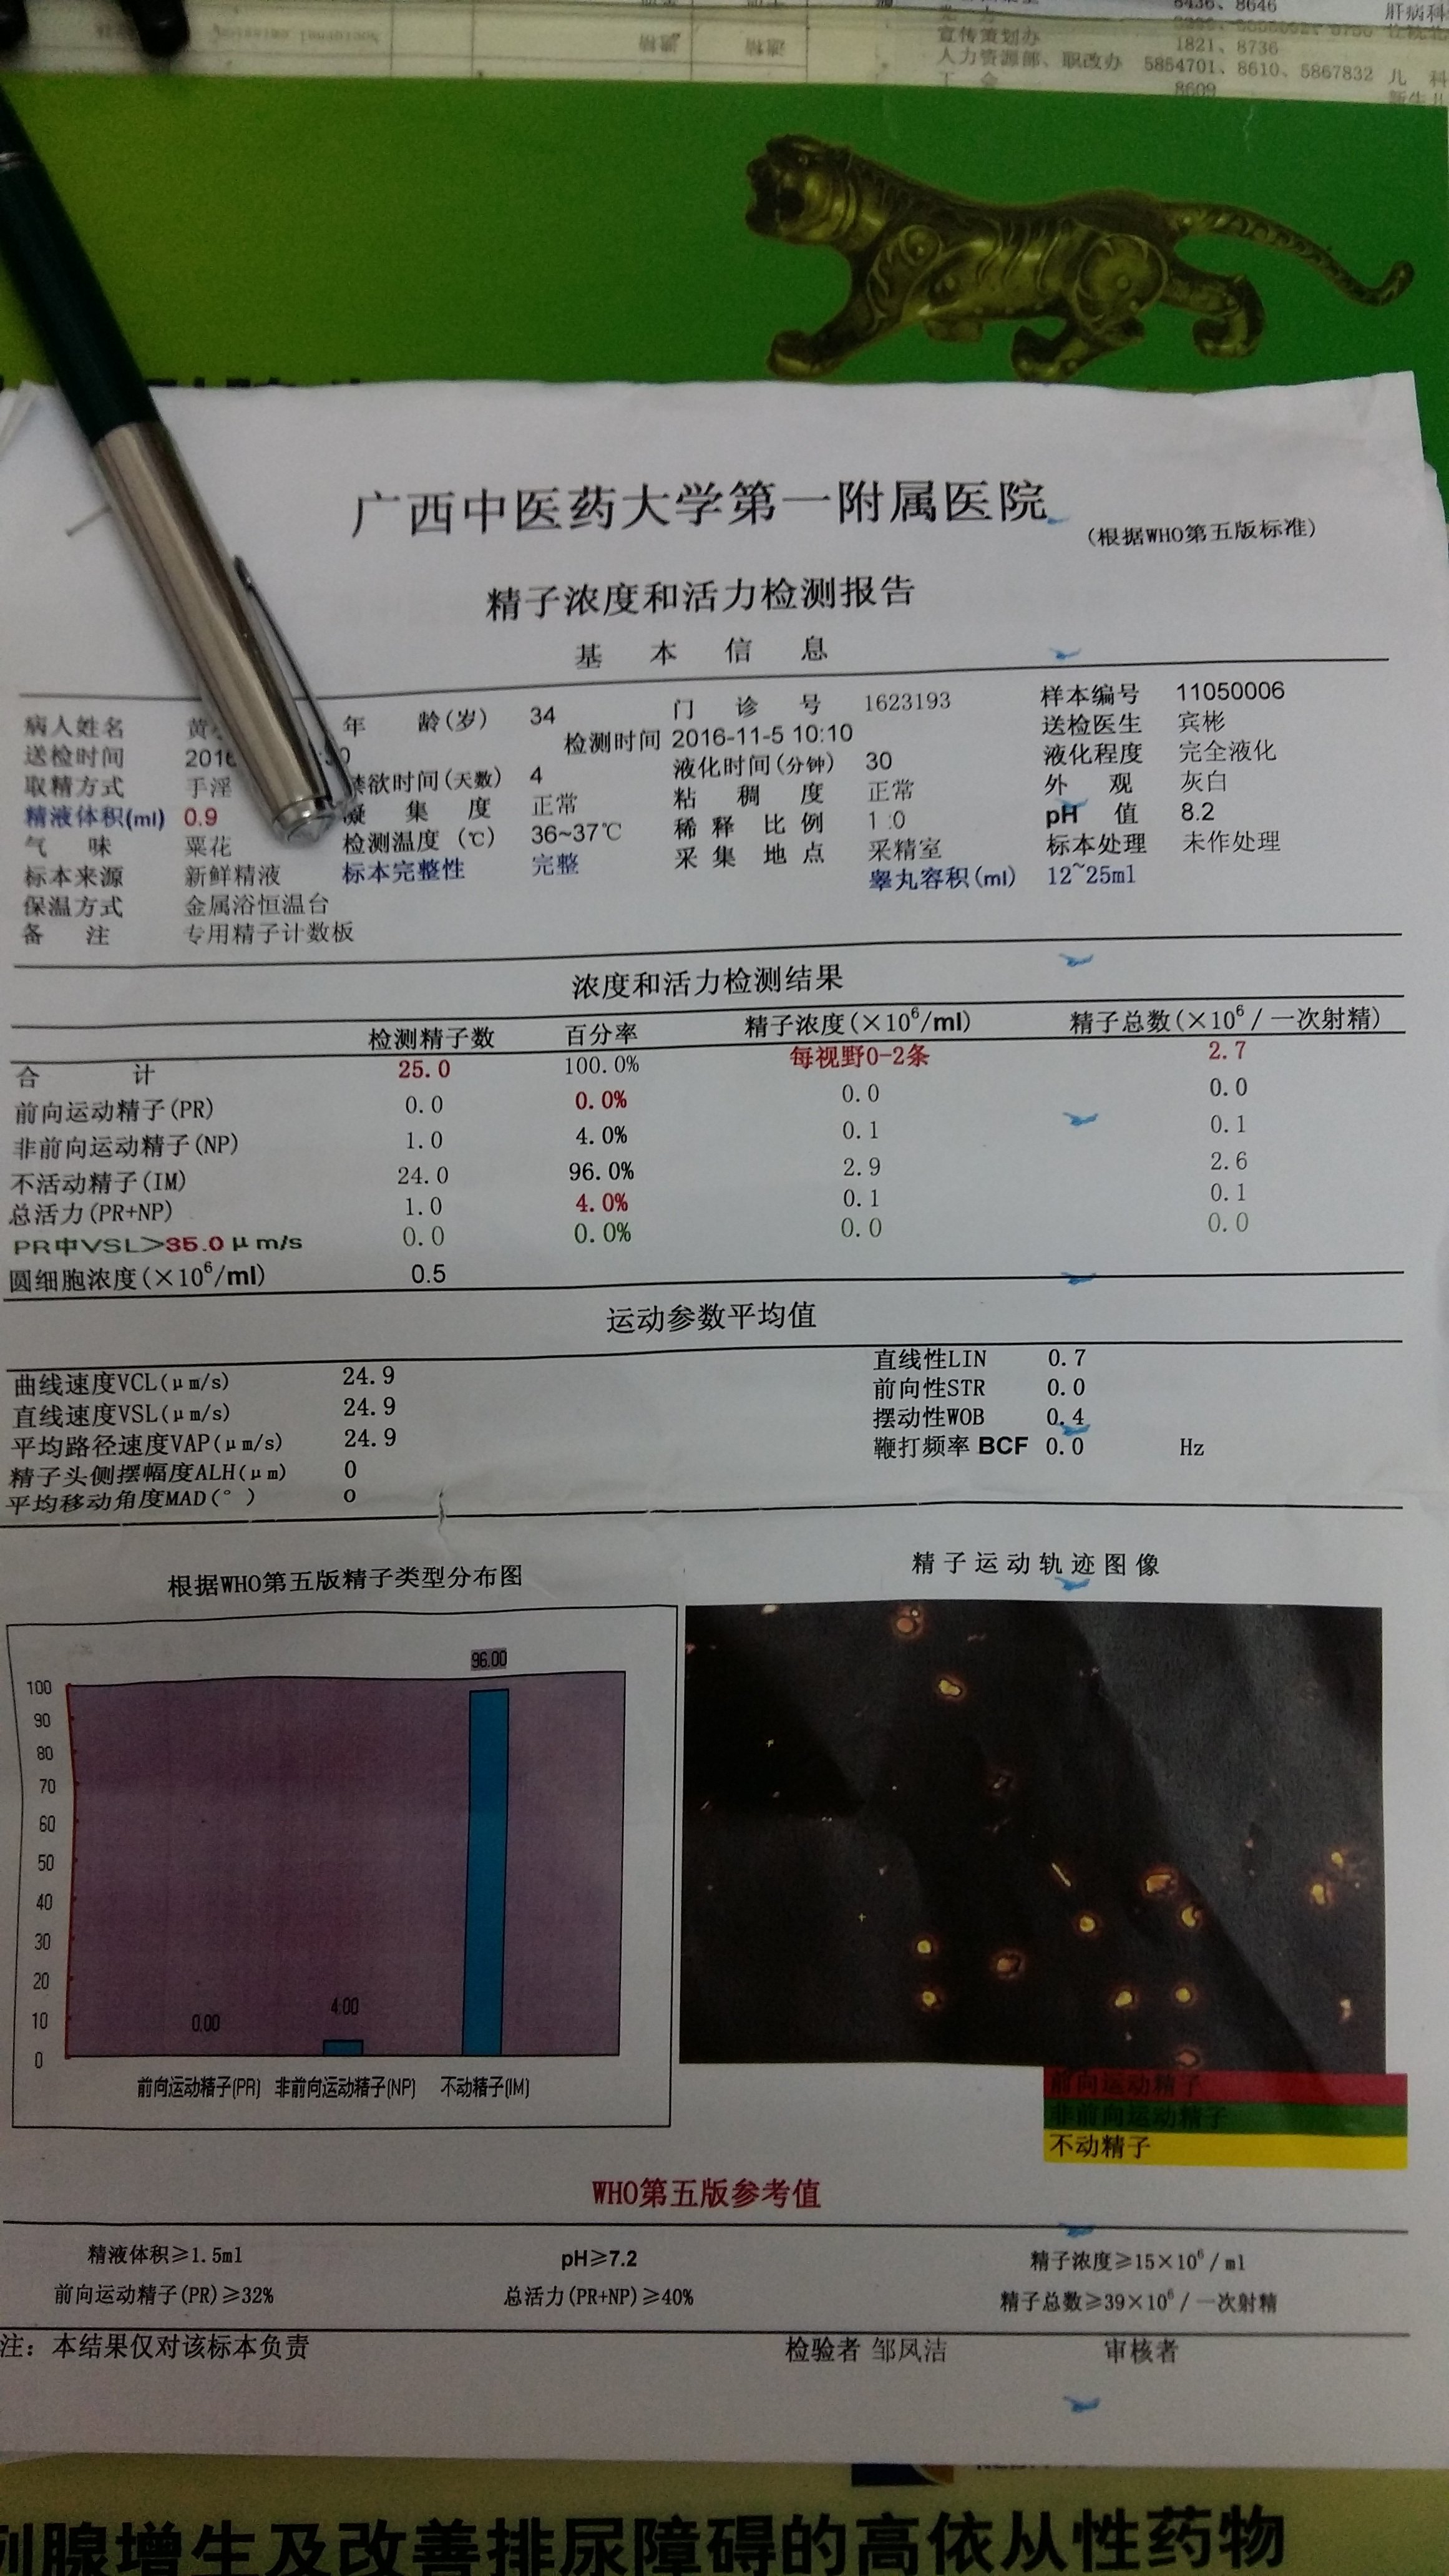 8436、8646
肝病科
宣传策划办
1821、8736
人力资源部、职改办 5854701、8610、5867832 儿 科
工 会 8609
广西中医药大学第一附属医院
(根据WHO第五版标准)
精子浓度和活力检测报告
基 本 信 息
病人姓名 黄 年 龄(岁) 34 门 诊 号 1623193 样本编号 11050006
送检时间 2016 检测时间 2016-11-5 10:10 送检医生 宾彬
取精方式 手淫 禁欲时间(天数) 4 液化时间(分钟) 30 液化程度 完全液化
精液体积(ml) 0.9 凝 集 度 正常 粘 稠 度 正常 外 观 灰白
气 味 粟花 检测温度(℃) 36~37℃ 稀 释 比 例 1:0 pH 值 8.2
标本来源 新鲜精液 标本完整性 完整 采 集 地 点 采精室 标本处理 未作处理
保温方式 金属浴恒温台 睾丸容积(ml) 12~25ml
备 注 专用精子计数板
浓度和活力检测结果
检测精子数 百分率 精子浓度(×10⁶/ml) 精子总数(×10⁶/一次射精)
合 计 25.0 100.0% 每视野0-2条 2.7
前向运动精子(PR) 0.0 0.0% 0.0 0.0
非前向运动精子(NP) 1.0 4.0% 0.1 0.1
不活动精子(IM) 24.0 96.0% 2.9 2.6
总活力(PR+NP) 1.0 4.0% 0.1 0.1
PR中VSL>35.0μm/s 0.0 0.0% 0.0 0.0
圆细胞浓度(×10⁶/ml) 0.5
运动参数平均值
曲线速度VCL(μm/s) 24.9 直线性LIN 0.7
直线速度VSL(μm/s) 24.9 前向性STR 0.0
平均路径速度VAP(μm/s) 24.9 摆动性WOB 0.4
精子头侧摆幅度ALH(μm) 0 鞭打频率 BCF 0.0 Hz
平均移动角度MAD(°) 0
根据WHO第五版精子类型分布图
精子运动轨迹图像
96.00
100
90
80
70
60
50
40
30
20
10
0
0.00
4.00
前向运动精子(PR) 非前向运动精子(NP) 不动精子(IM)
前向运动精子
非前向运动精子
不动精子
WHO第五版参考值
精液体积≥1.5ml pH≥7.2 精子浓度≥15×10⁶/ml
前向运动精子(PR)≥32% 总活力(PR+NP)≥40% 精子总数≥39×10⁶/一次射精
注: 本结果仅对该标本负责 检验者 邹凤洁 审核者
列腺增生及改善排尿障碍的高依从性药物